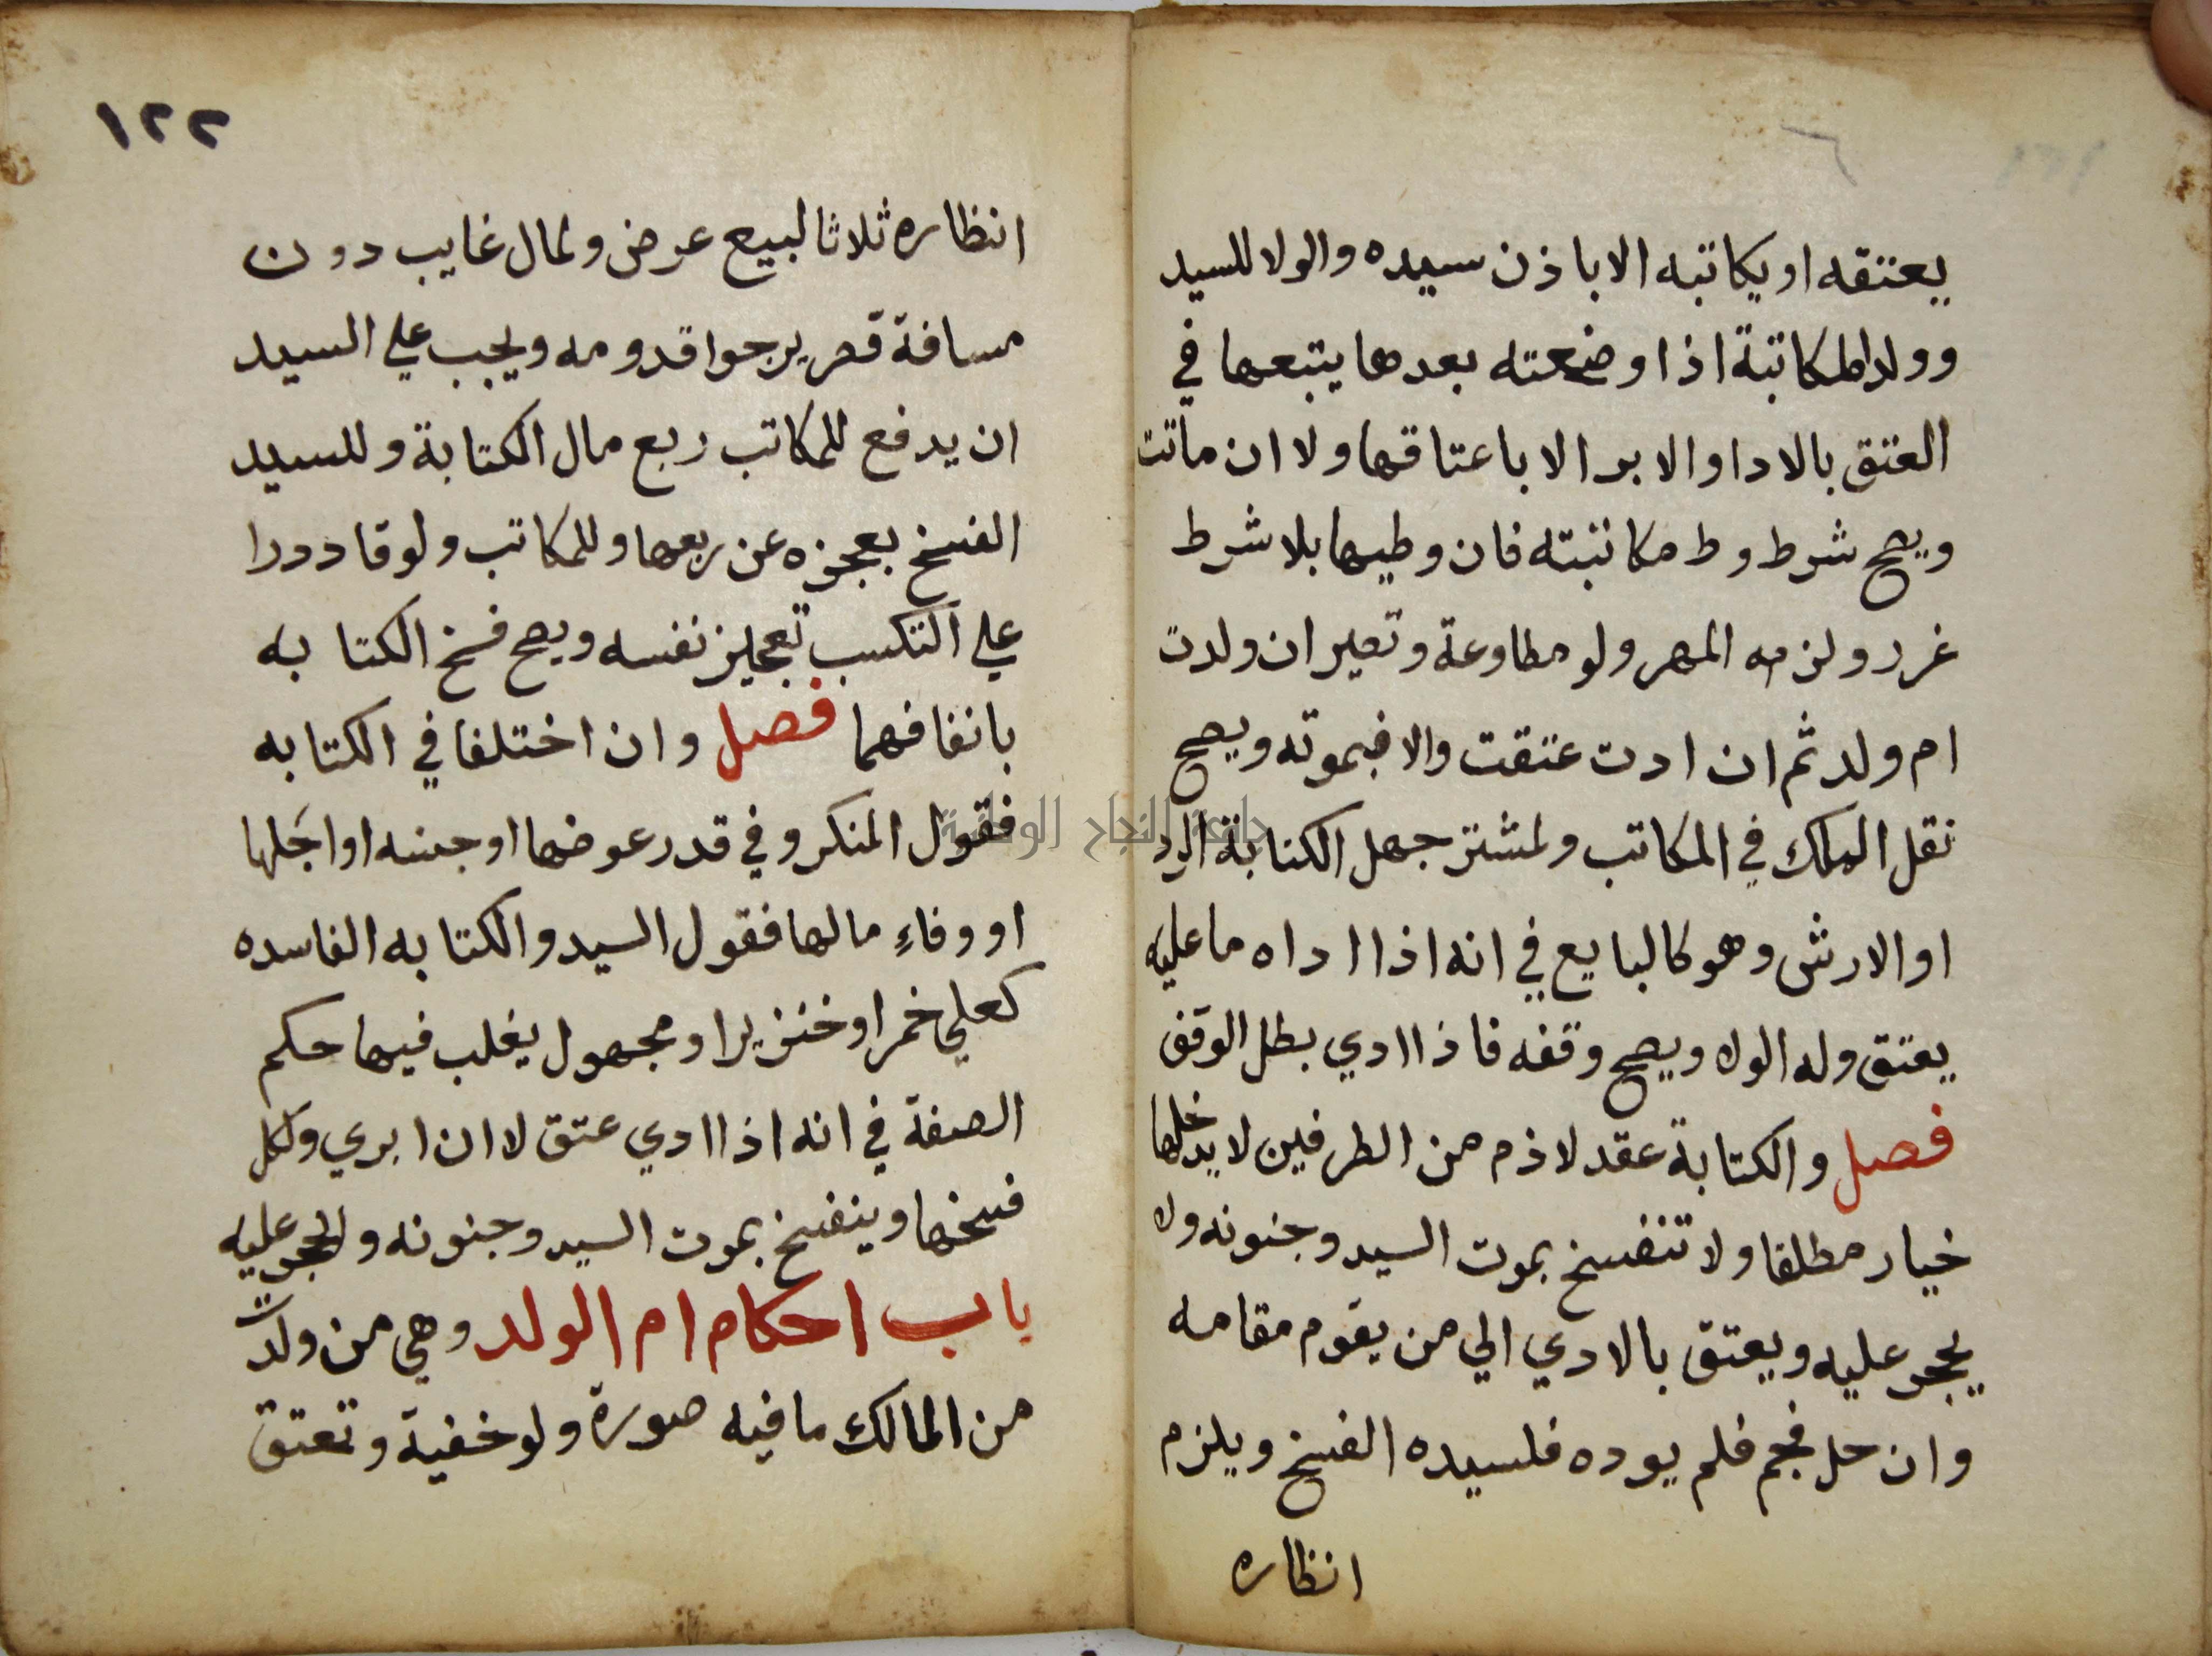 يعتقه او يكاتبه الا باذن سيده والولا للسيد
وولد المكاتبة اذا وضعته بعدها يتبعها في
العتق بالادا والابرا لا باعتاقها ولا ان ماتت
ويصح شرط وط مكاتبته فان وطيها بلا شرط
عزر ولزمه المهر ولو مطاوعة وتصير ان ولدت
ام ولد ثم ان ادت عتقت والا فبموته ويصح
نقل الملك في المكاتب ولمشتر جهل الكتابة الرد
او الارش وهو كالبايع في انه اذا اداه ما عليه
يعتق وله الولا ويصح وقفه فاذا ادي بطل الوقف
فصل والكتابة عقد لازم من الطرفين لا يدخلها
خيار مطلقا ولا تنفسخ بموت السيد وجنونه ولا
يحجر عليه ويعتق بالادي الي من يقوم مقامه
وان حل نجم فلم يوده فلسيده الفسخ ويلزم
انظاره
١٢٢
انظاره ثلاثا لبيع عرض ولمال غايب دون
مسافة قصر يرجوا قدومه ويجب علي السيد
ان يدفع للمكاتب ربع مال الكتابة وللسيد
الفسخ بعجزه عن ربعها وللمكاتب ولو قادرا
علي التكسب تعجيز نفسه ويصح فسخ الكتابه
باتفاقهما فصل وان اختلفا في الكتابه
فقول المنكر وفي قدر عوضها او جنسه او اجلها
او وفاءِ مالها فقول السيد والكتابه الفاسده
كعلي خمر او خنزير او مجهول يغلب فيها حكم
الصفة في انه اذا ادي عتق لا ان ابري ولكل
فسخها وينفسخ بموت السيد وجنونه والحجر عليه
باب احكام ام الولد وهي من ولدت
من المالك ما فيه صورة ولو خفية وتعتق
جامعة النجاح الوطنية